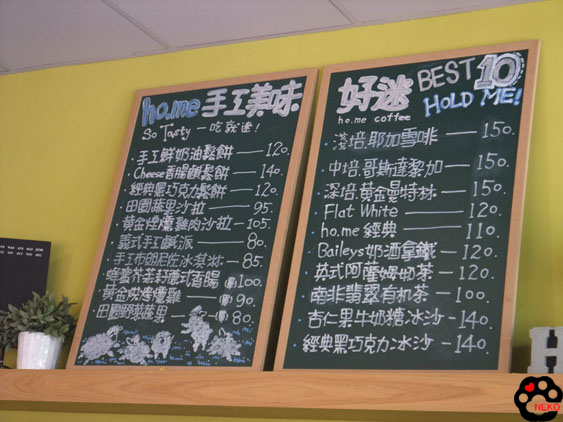 ho.me 手工美味
So Tasty 一吃就迷!
手工鮮奶油鬆餅 — 120.
Cheese香腸鹹鬆餅 — 140.
經典黑巧克力鬆餅 — 120.
田園蔬果沙拉 — 95.
黃金煙燻雞肉沙拉 — 105.
義式手工鹹派 — 80.
手工布朗尼佐冰淇淋 — 85.
蜂蜜芥茉籽德式香腸 100.
黃金煙烤燻雞 90.
田園野蔬蔬果 80.
好迷 BEST 10
ho.me coffee HOLD ME!
淺培.耶加雪啡 — 150.
中培.哥斯達黎加 — 150.
深培.黃金曼特林 — 150.
Flat White — 120.
ho.me 經典 — 110.
Baileys奶酒拿鐵 — 120.
英式阿薩姆奶茶 — 120.
南非翡翠有机茶 — 100.
杏仁果牛奶糖冰沙 — 140.
經典黑巧克力冰沙 — 140.
NEKO